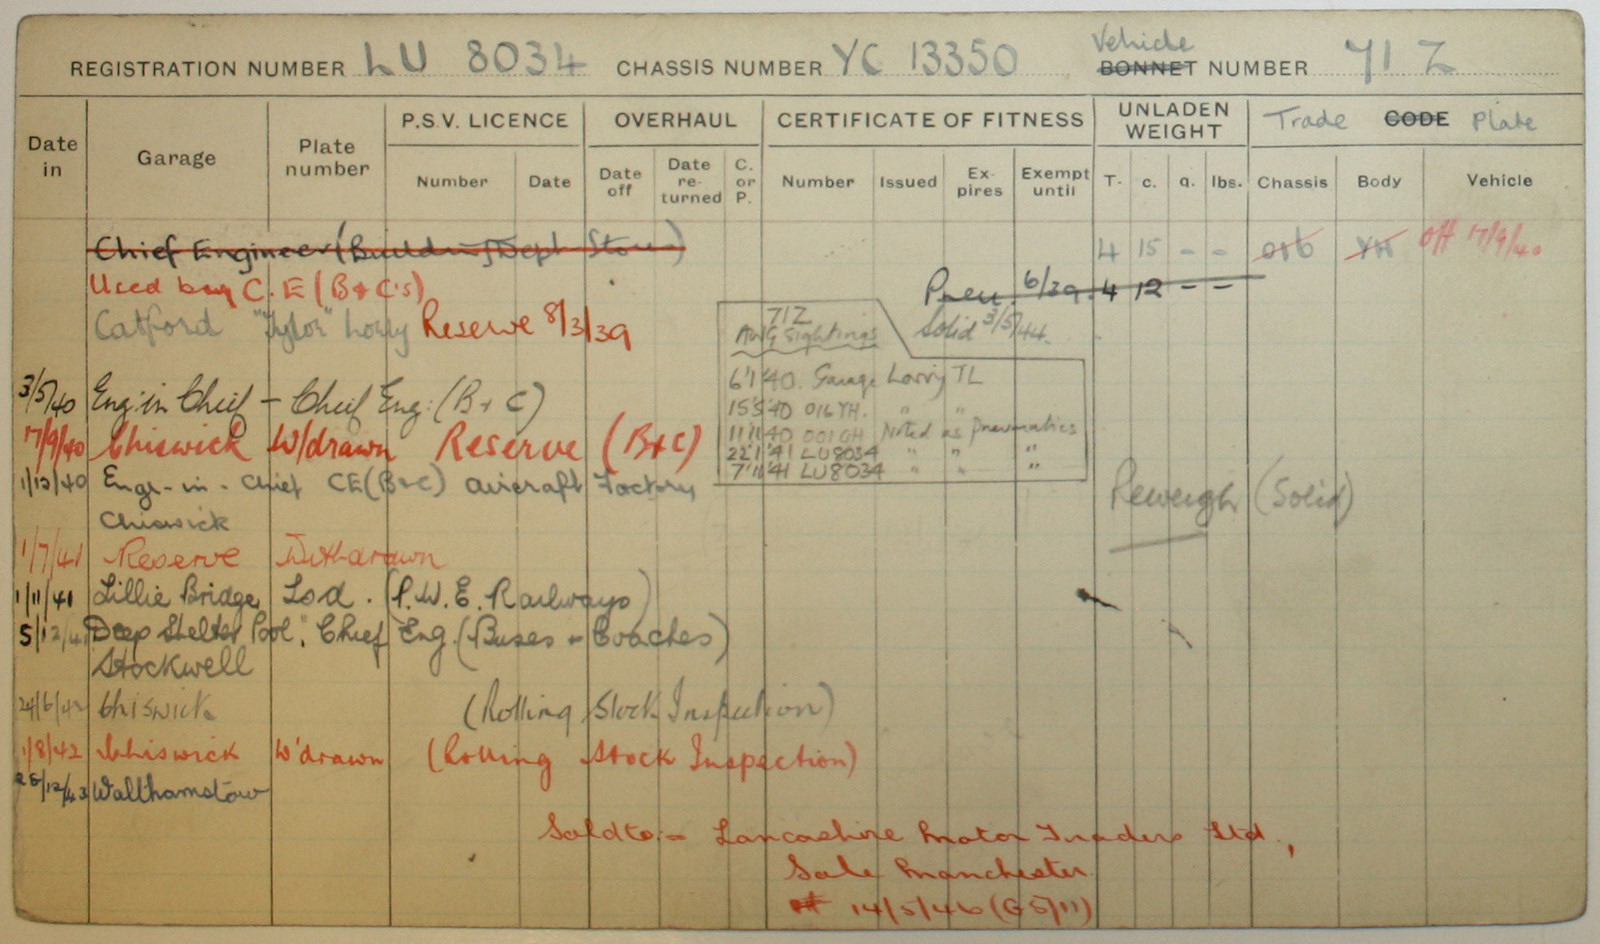 REGISTRATION NUMBER LU 8034 CHASSIS NUMBER YC 13350 Vehicle BONNET NUMBER 71 Z
Date in Garage Plate number P.S.V. LICENCE OVERHAUL CERTIFICATE OF FITNESS UNLADEN WEIGHT Trade CODE Plate
Number Date Date off Date re-turned C. or P. Number Issued Ex-pires Exempt until T. c. q. lbs. Chassis Body Vehicle
Chief Engineer (Building Dept Store) 4 15 - - 016 YH off 17/9/40
Used by C.E (B+C's) Pneu. 6/39. 4 12 - -
Catford "Tylor" Lorry Reserve 8/3/39 Solid 3/5/44.
71Z
AWG Sightings
6'1'40. Garage Lorry TL
15'5'40 016YH. " "
11'11'40 001GH Noted as pneumatics
22'1'41 LU8034 " " "
7'11'41 LU8034 " " "
3/5/40 Eng. in Chief - Chief Eng: (B+C)
17/9/40 Chiswick W/drawn Reserve (B+C)
1/12/40 Engr-in-Chief CE(B+C) aircraft Factory
Chiswick
Reweigh (Solid)
1/7/41 Reserve Withdrawn
1/11/41 Lillie Bridge Lsd. (P.W.E. Railways)
5/12/41 Deep Shelter Pool. Chief Eng. (Buses + Coaches)
Stockwell
24/6/42 Chiswick (Rolling Stock Inspection)
1/8/42 Chiswick W'drawn (Rolling Stock Inspection)
28/12/43 Walthamstow
Sold to:- Lancashire Motor Traders Ltd.,
Sale Manchester
14/5/46 (G5/11)